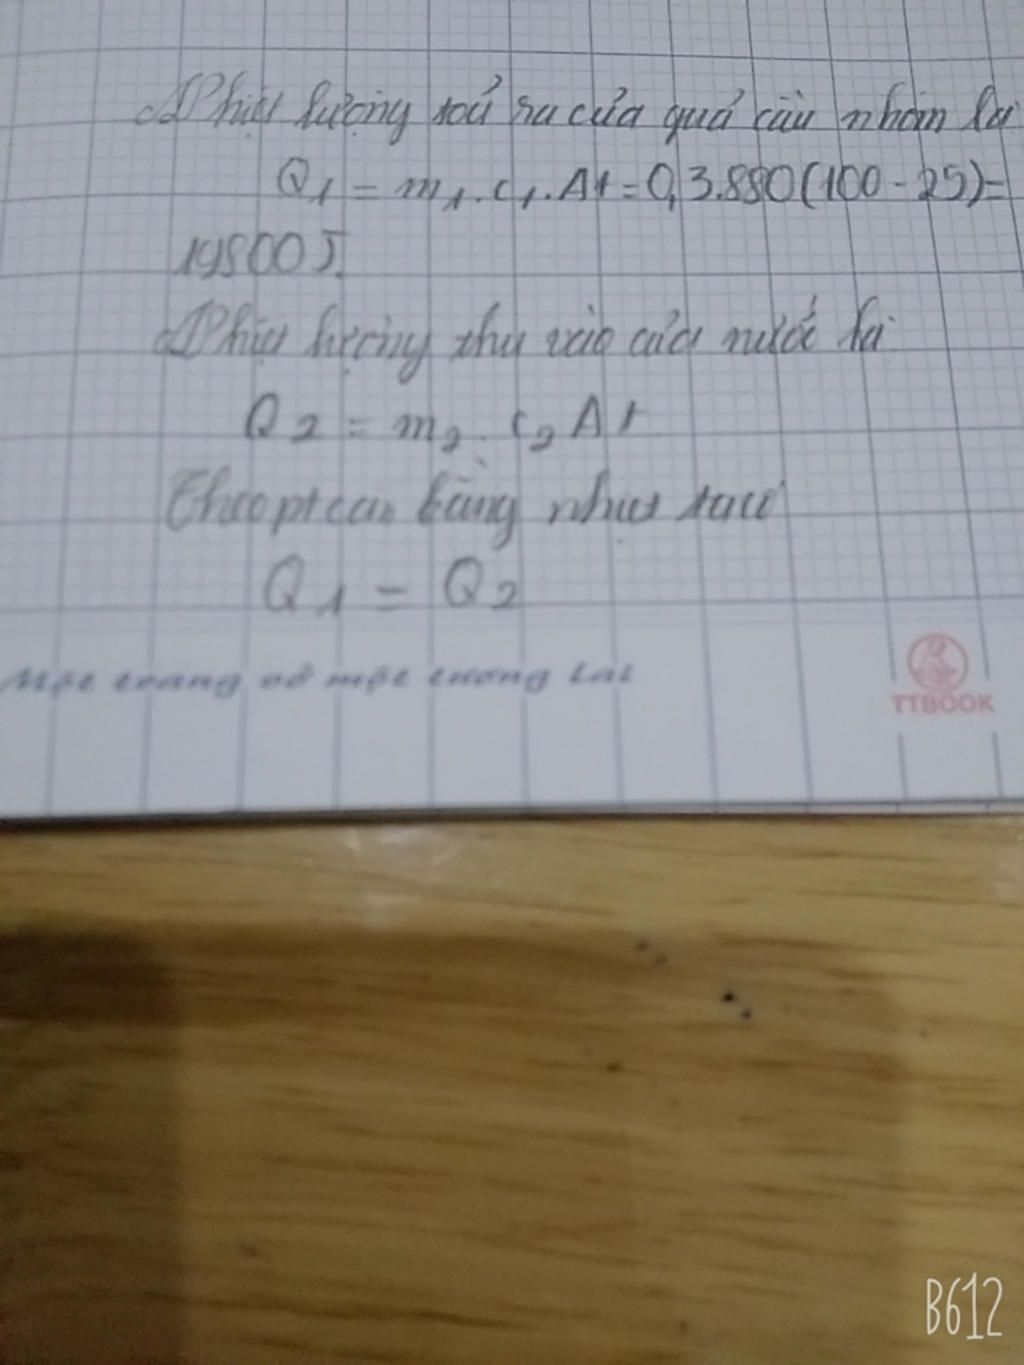 Nhiệt lượng toả ra của quả cầu nhôm là
Q1 = m1.c1.Δt = 0,3.880(100-25)=
19800J.
Nhiệt lượng thu vào của nước là
Q2 = m2.c2Δt
Theo pt cân bằng nhiệt ta có
Q1 = Q2
Một trang vở một tương lai
TTBOOK
B612